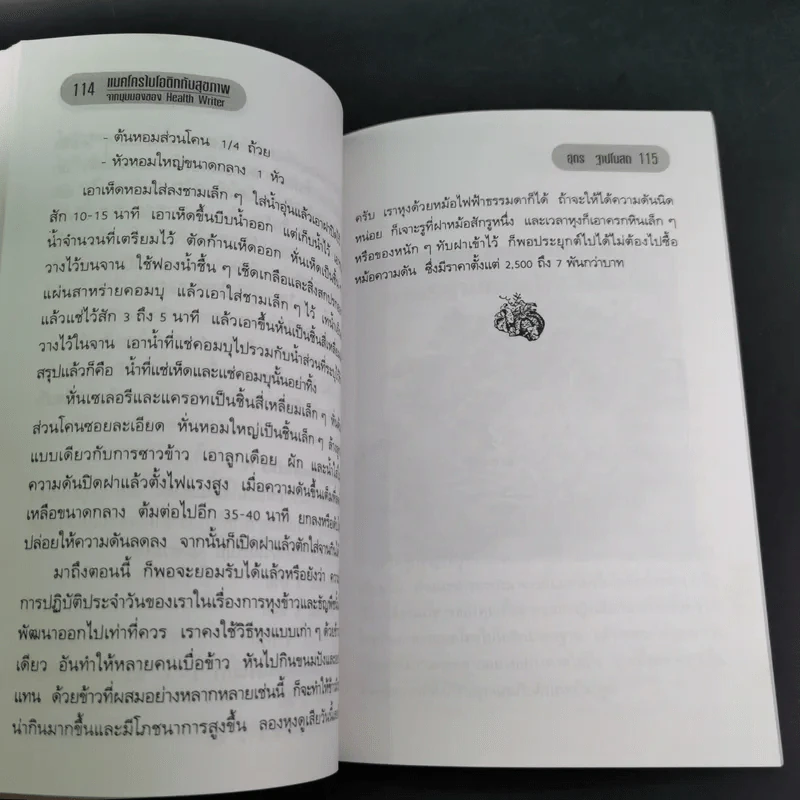 114 แมคโครไบโอติกกับสุขภาพ
จากมุมมองของ Health Writer
- ต้นหอมส่วนโคน 1/4 ถ้วย
- หัวหอมใหญ่ขนาดกลาง 1 หัว
เอาเห็ดหอมใส่ลงชามเล็ก ๆ ใส่น้ำอุ่นแล้วเอาฝาปิดไว้
สัก 10-15 นาที เอาเห็ดขึ้นบีบน้ำออก แต่เก็บน้ำไว้
น้ำจำนวนที่เตรียมไว้ ตัดก้านเห็ดออก หั่นเห็ดเป็นชิ้น
วางไว้บนจาน ใช้ฟองน้ำชื้น ๆ เช็ดเกลือและสิ่งสกปรก
แผ่นสาหร่ายคอมบุ แล้วเอาใส่ชามเล็ก ๆ ไว้ เทน้ำ
แล้วแช่ไว้สัก 3 ถึง 5 นาที แล้วเอาขึ้นหั่นเป็นชิ้นสี่เหลี่ยม
วางไว้ในจาน เอาน้ำที่แช่คอมบุไปรวมกับน้ำส่วนที่ระบุไว้
สรุปแล้วก็คือ น้ำที่แช่เห็ดและแช่คอมบุนั้นอย่าทิ้ง
หั่นเซเลอรีและแครอทเป็นชิ้นสี่เหลี่ยมเล็ก ๆ หั่น
ส่วนโคนซอยละเอียด หั่นหอมใหญ่เป็นชิ้นเล็ก ๆ
แบบเดียวกับการซาวข้าว เอาลูกเดือย ผัก และน้ำ
ความดันปิดฝาแล้วตั้งไฟแรงสูง เมื่อความดันขึ้นเต็มที่
เหลือขนาดกลาง ต้มต่อไปอีก 35-40 นาที ยกลงหรือ
ปล่อยให้ความดันลดลง จากนั้นก็เปิดฝาแล้วตักใส่จาน
มาถึงตอนนี้ ก็พอจะยอมรับได้แล้วหรือยังว่า
การปฏิบัติประจำวันของเราในเรื่องการหุงข้าวและธัญพืช
พัฒนาออกไปเท่าที่ควร เราคงใช้วิธีหุงแบบเก่า ๆ ด้วยข้าว
เดียว อันทำให้หลายคนเบื่อข้าว หันไปกินขนมปังและ
แทน ด้วยข้าวที่ผสมอย่างหลากหลายเช่นนี้ ก็จะทำให้ข้าว
น่ากินมากขึ้นและมีโภชนาการสูงขึ้น ลองหุงดูเสียวันนี้
อุทร ฐาปโนสถ 115
ครับ เราหุงด้วยหม้อไฟฟ้าธรรมดาก็ได้ ถ้าจะให้ได้ความดันนิด
หน่อย ก็เจาะรูที่ฝาหม้อสักรูหนึ่ง และเวลาหุงก็เอาครกหินเล็ก ๆ
หรือของหนัก ๆ ทับฝาเข้าไว้ ก็พอประยุกต์ไปได้ไม่ต้องไปซื้อ
หม้อความดัน ซึ่งมีราคาตั้งแต่ 2,500 ถึง 7 พันกว่าบาท